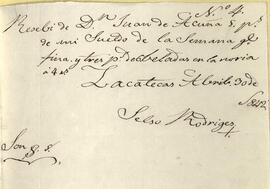 N.º 4.
Resebi de D.n Juan de Acuña 5 p.s
de mi Sueldo de la Semana q.e
fina. y tres p.s de beladas en la noria
á 4 r.s
Zacatecas Abril 30 de
1842
Selso Rodriges
Son 8. $.